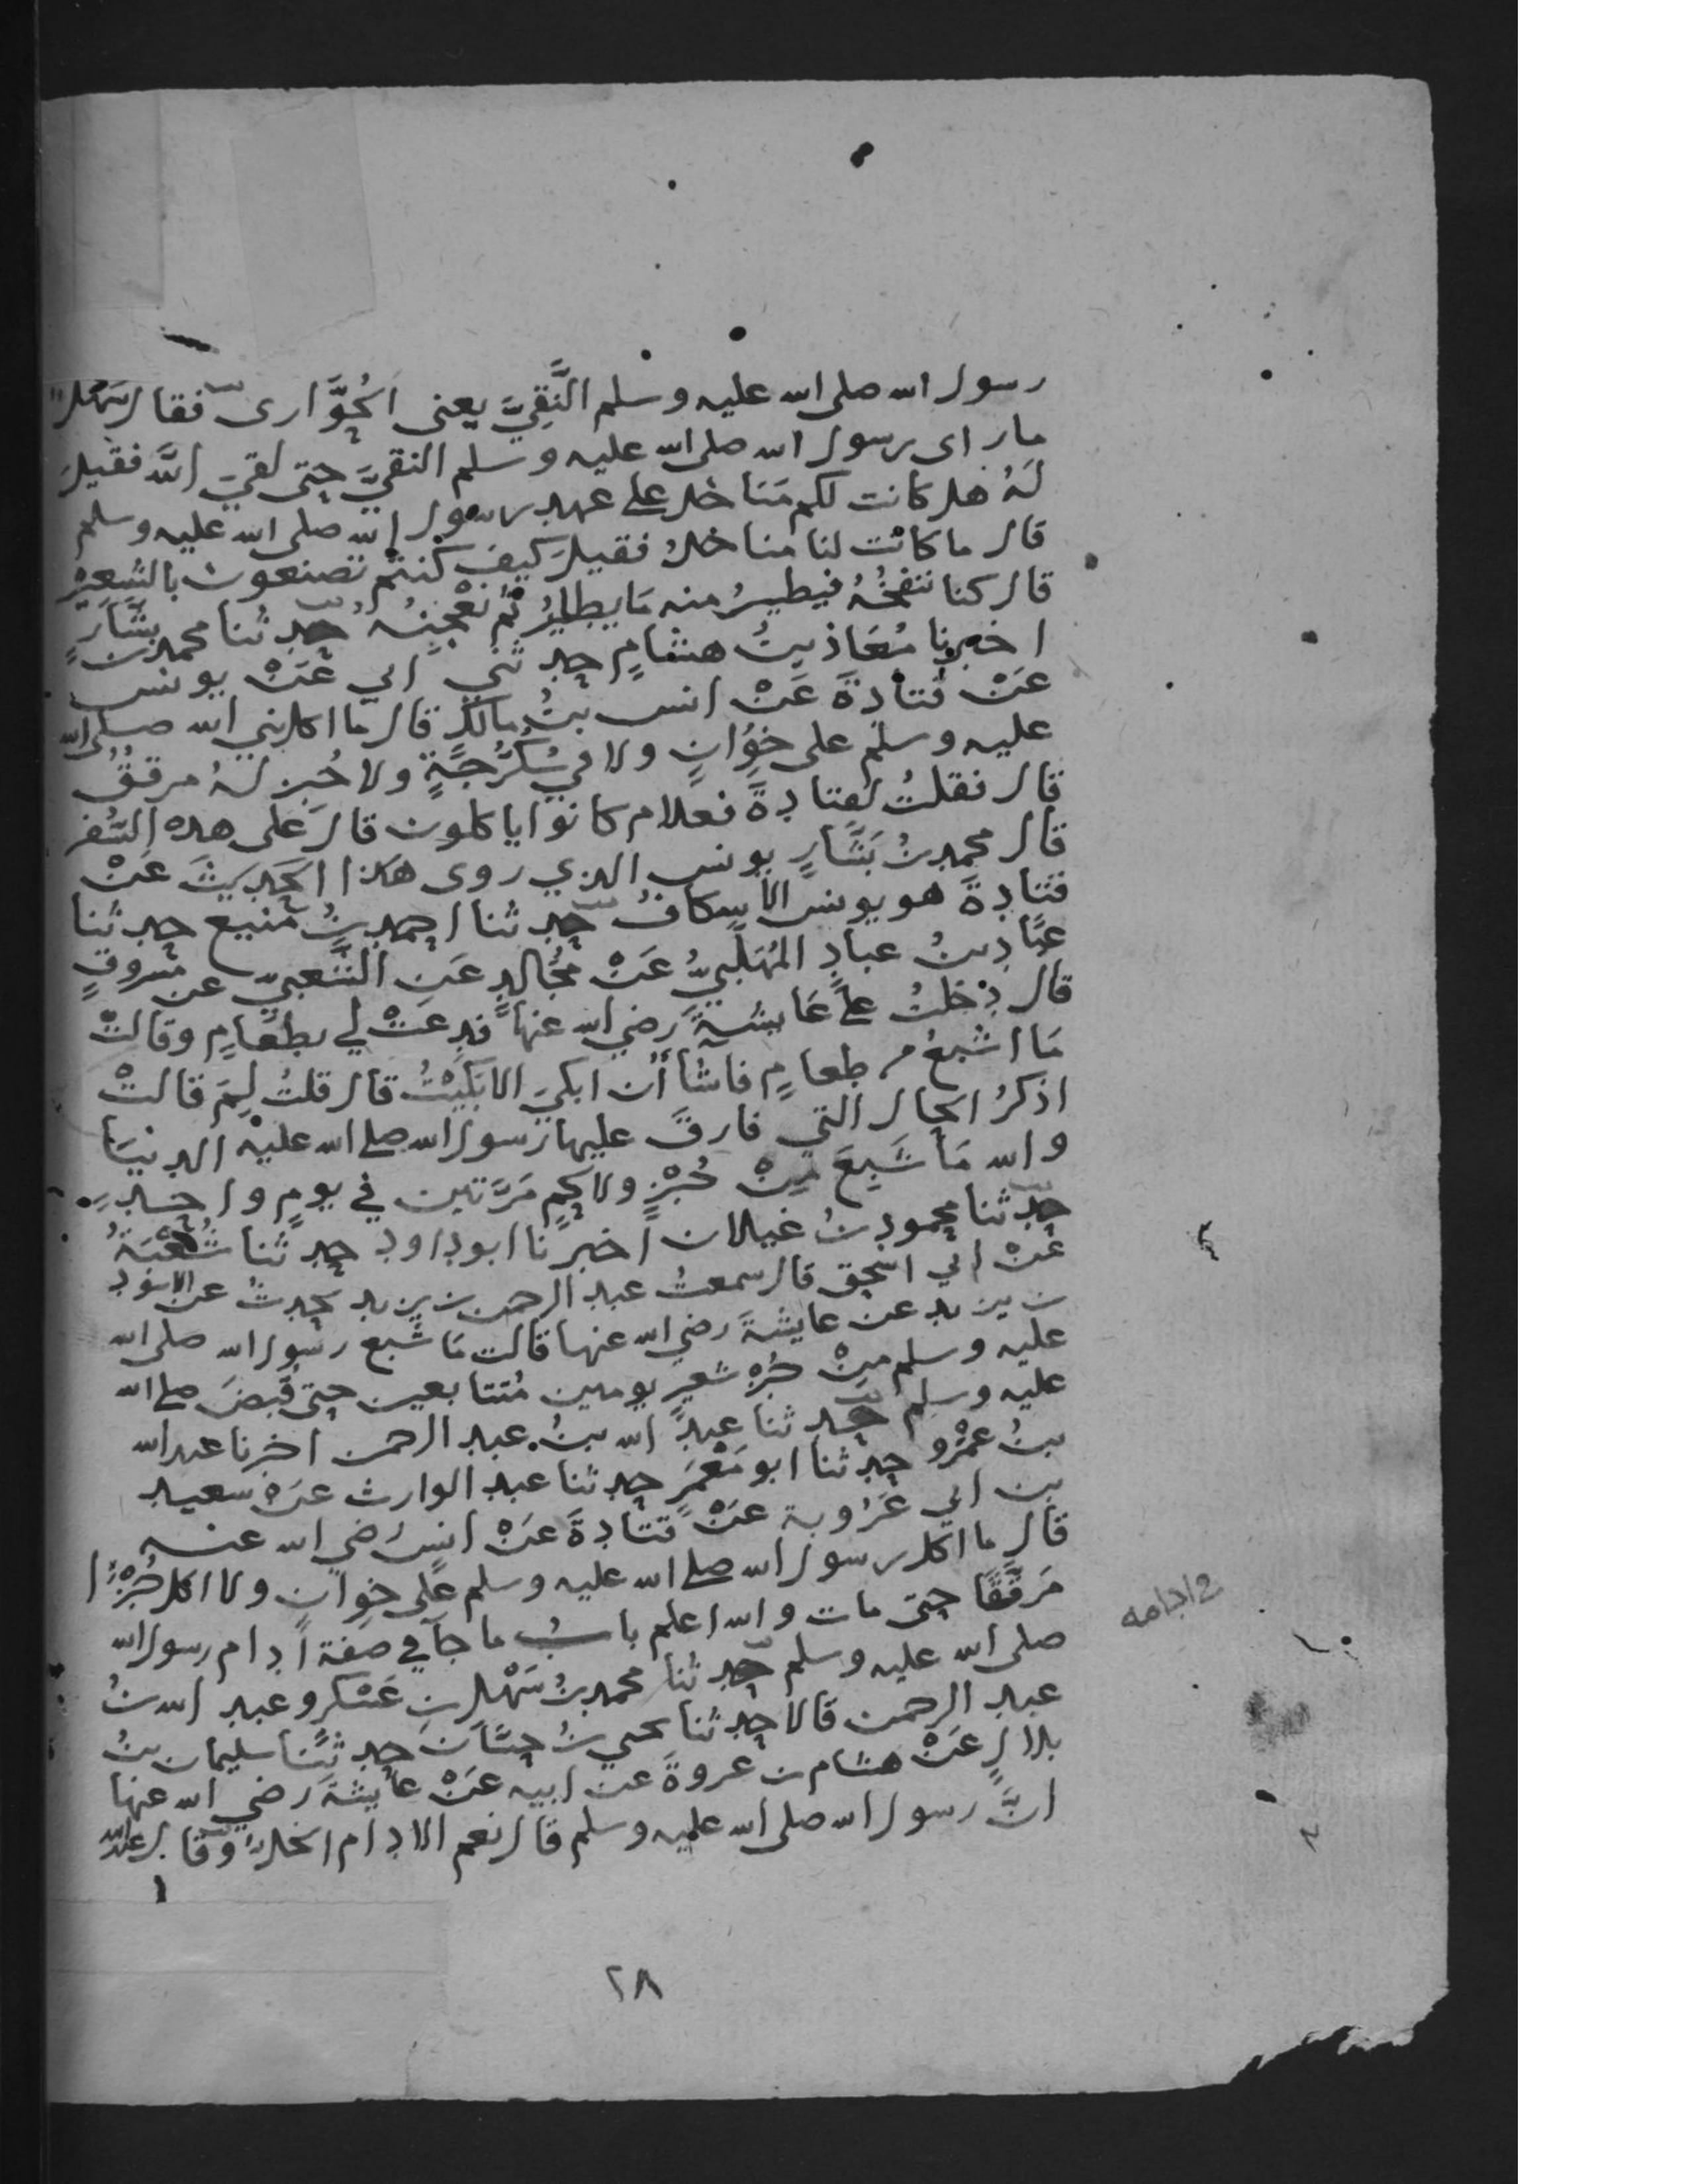 رسول الله صلى الله عليه وسلم النَّقِيَّ يعنى الحُوَّارى فقال سَهْل
ما راى رسول الله صلى الله عليه وسلم النقيَّ حتى لقيَ اللهَ فقيلَ
لَهُ هل كانت لكم مَنَاخل على عهد رسول الله صلى الله عليه وسلم
قال ما كانت لنا مناخلُ فقيلَ كيف كنتم تصنعون بالشَّعِيْرِ
قال كنا ننفُخُهُ فيطيرُ منه مَا يطيرُ ثُم نَعْجِنُهُ حدثنا محمد بن بشَّارٍ
اخبرنا مُعَاذ بنُ هشامٍ حدثني ابي عَنْ يونس
عَنْ قتادةَ عَنْ انس بنُ مالكٍ قال ما اكل نبي الله صلى الله
عليه وسلم على خِوُانٍ ولا في سُكُرَّجَةٍ ولا خُبِز لَهُ مرققُ
قال فقلتُ لقتادةَ فعلام كانوا ياكلون قال عَلى هذه السُّفر
قال محمد بنُ بَشَّارٍ يونس الذي روى هذا الحَدِيثَ عَنْ
قتادةَ هو يونس الاسكافُ حدثنا احمد بنُ مَنيع حدثنا
عبَّاد بنُ عبادٍ المُهَلَّبيُّ عَنْ مُجَالدٍ عَنِ الشَّعبيِّ عن مسروقٍ
قال دخلتُ على عَايشةَ رضي الله عنها فدعَتْ لي بطعَامٍ وقالتْ
مَا اشبعُ من طعامٍ فاشَا أن ابكيَ الا بَكَيْتُ قال قلتُ لِمَ قالتْ
اذكرُ الحال التي فارقَ عليها رسول الله صلى الله عليه الدنيَا
والله مَا شَبِعَ مِنْ خُبْزٍ ولا لحمٍ مَرَّتين في يومٍ واحدٍ
حدثنا محمود بنُ غيلان اخبرنا ابو داود حدثنا شُعْبَةُ
عَنْ ابي اسحق قال سمعتُ عبد الرحمن بن يزيد يحدث عن الاسْوَد
بن يزيد عن عايشةَ رضي الله عنها قالت مَا شبع رسول الله صلى الله
عليه وسلم مِنْ خُبْزِ شعيرٍ يومين مُتتابعين حتى قُبِضَ صلى الله
عليه وسلم حدثنا عبدُ الله بنُ عبد الرحمن اخبرنا عبد الله
بنُ عَمْرٍو حدثنا ابو مَعْمَرَ حدثنا عبد الوارث عَنْ سعيد
بن ابي عَرُوبة عَنْ قتادةَ عَنْ انس رَضي الله عنه
قال ما اكل رسول الله صلى الله عليه وسلم عَلى خِوانٍ ولا اكل خُبْزًا
مَرقَّقًا حتى مات والله اعلم بابُ ما جآ في صفة اِدام رسول الله
صلى الله عليه وسلم حدثنا محمد بنُ سَهْلِ بنِ عَسْكر وعبد الله بنُ
عبد الرحمن قالا حدثنا يحيى بنُ حسَّان حدثنا سليمان بنُ
بلالٍ عَنْ هشام بن عروةَ عن ابيه عَنْ عايشةَ رضي الله عنها
انَّ رسول الله صلى الله عليه وسلم قال نعم الادام الخلُّ وقال عبد الله
في ادامه
٢٨